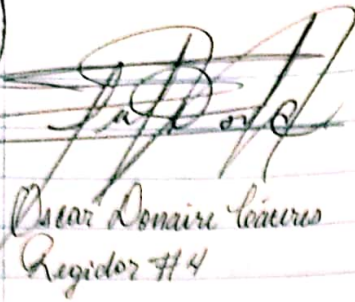 Oscar Donaire Cáceres
Regidor #4